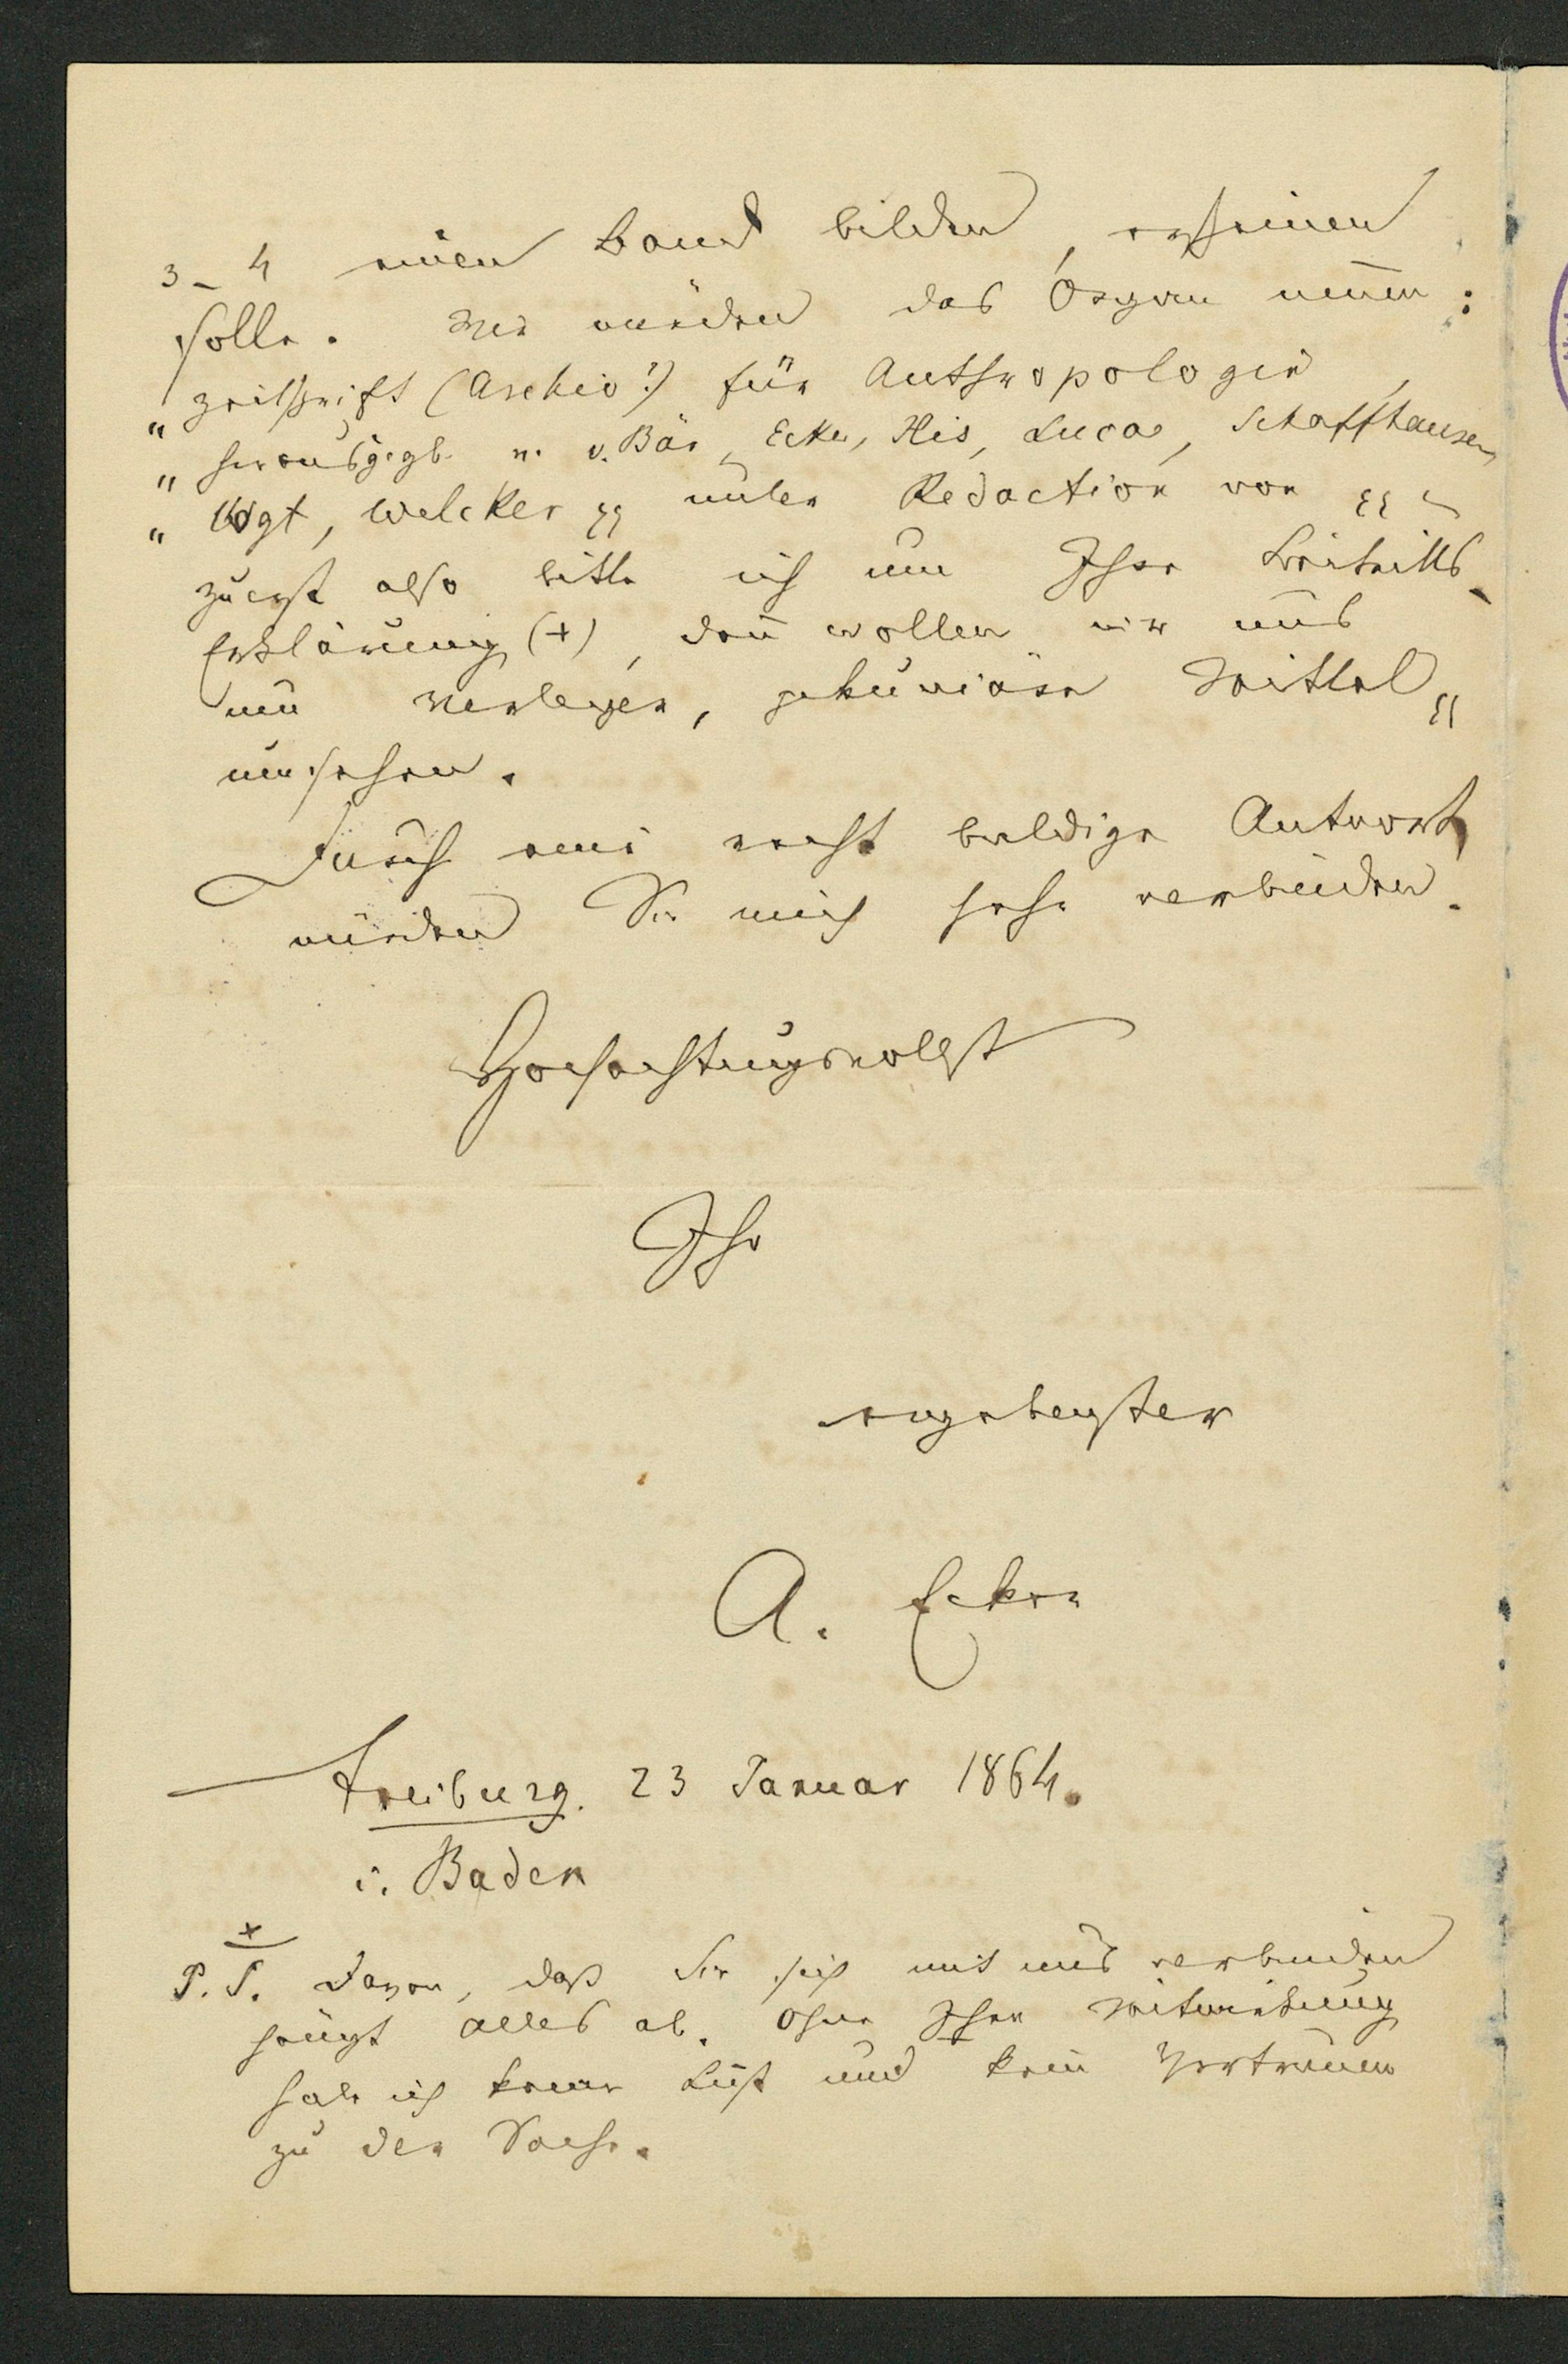 3-4 einen Band bilden, erscheinen
solle. Wir würden das Organ nennen:
„Zeitschrift (Archiv?) für Anthropologie,
„herausgegb. v. v. Bär, Ecker, His, Lucae, Schaffhausen,
„Vogt, Welcker etc unter Redaction von etc
Zuerst also bitte ich um Ihre Beitritts-
Erklärung (+), dann wollen wir uns
um Verleger, pekuniäre Mittel etc
umsehen.
Durch eine recht baldige Antwort
würden Sie mich sehr verbinden.
Hochachtungsvollst
Ihr
ergebenster
A. Ecker
Freiburg. 23 Januar 1864.
i. Baden
+
P.S. Davon, daß Sie sich mit uns verbinden
hängt alles ab. Ohne Ihre Mitwirkung
habe ich keine Lust und kein Vertrauen
zu der Sache.